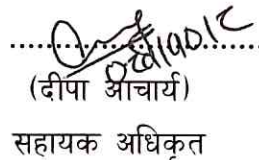 (दीपा आचार्य)
सहायक अधिकृत